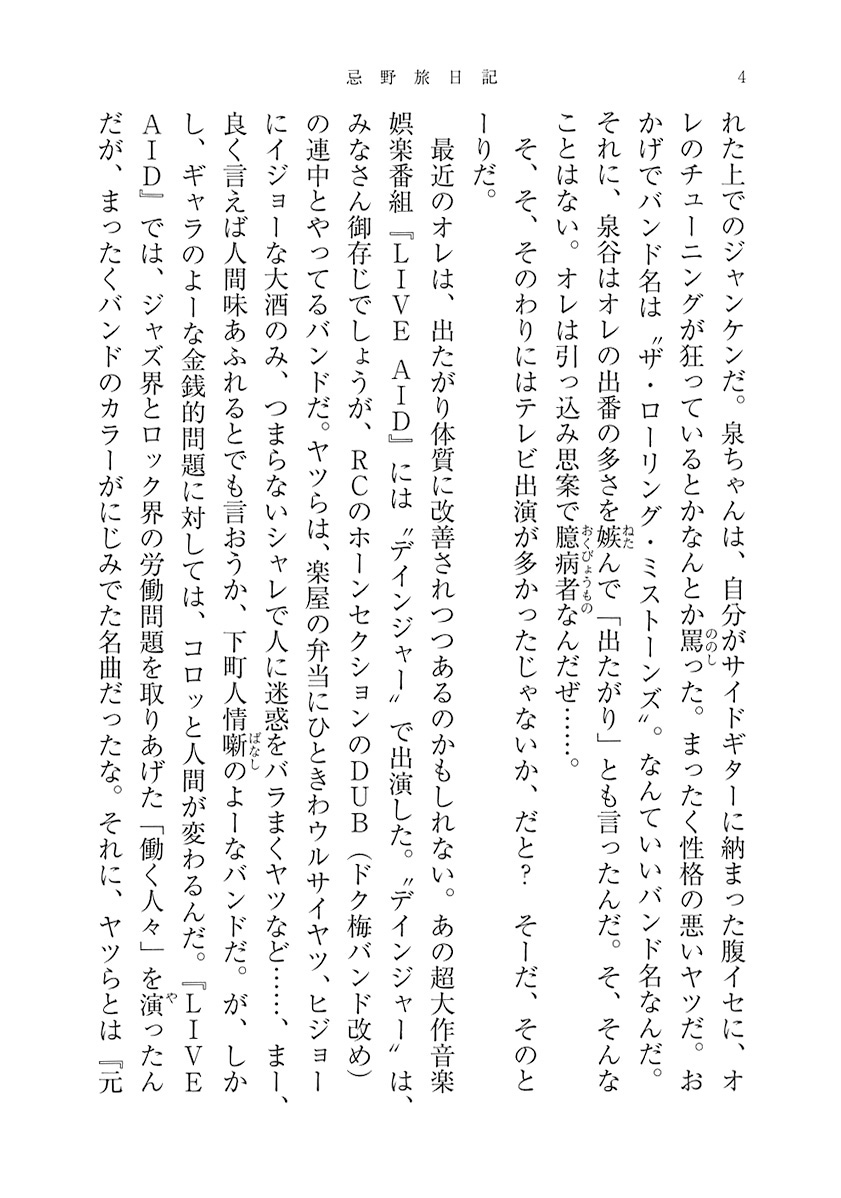 忌野旅日記
4
れた上でのジャンケンだ。泉ちゃんは、自分がサイドギターに納まった腹イセに、オ
レのチューニングが狂っているとかなんとか罵った。まったく性格の悪いヤツだ。お
かげでバンド名は〝ザ・ローリング・ミストーンズ〟。なんていいバンド名なんだ。
それに、泉谷はオレの出番の多さを嫉んで「出たがり」とも言ったんだ。そ、そんな
ことはない。オレは引っ込み思案で臆病者なんだぜ……。
そ、そ、そのわりにはテレビ出演が多かったじゃないか、だと？　そーだ、そのと
ーりだ。
最近のオレは、出たがり体質に改善されつつあるのかもしれない。あの超大作音楽
娯楽番組『LIVE AID』には〝デインジャー〟で出演した。〝デインジャー〟は、
みなさん御存じでしょうが、RCのホーンセクションのDUB（ドク梅バンド改め）
の連中とやってるバンドだ。ヤツらは、楽屋の弁当にひときわウルサイヤツ、ヒジョー
にイジョーな大酒のみ、つまらないシャレで人に迷惑をバラまくヤツなど……、まー、
良く言えば人間味あふれるとでも言おうか、下町人情噺のよーなバンドだ。が、しか
し、ギャラのよーな金銭的問題に対しては、コロッと人間が変わるんだ。『LIVE
AID』では、ジャズ界とロック界の労働問題を取りあげた「働く人々」を演ったん
だが、まったくバンドのカラーがにじみでた名曲だったな。それに、ヤツらとは『元
ののし
ねた
おくびょうもの
ばなし
や